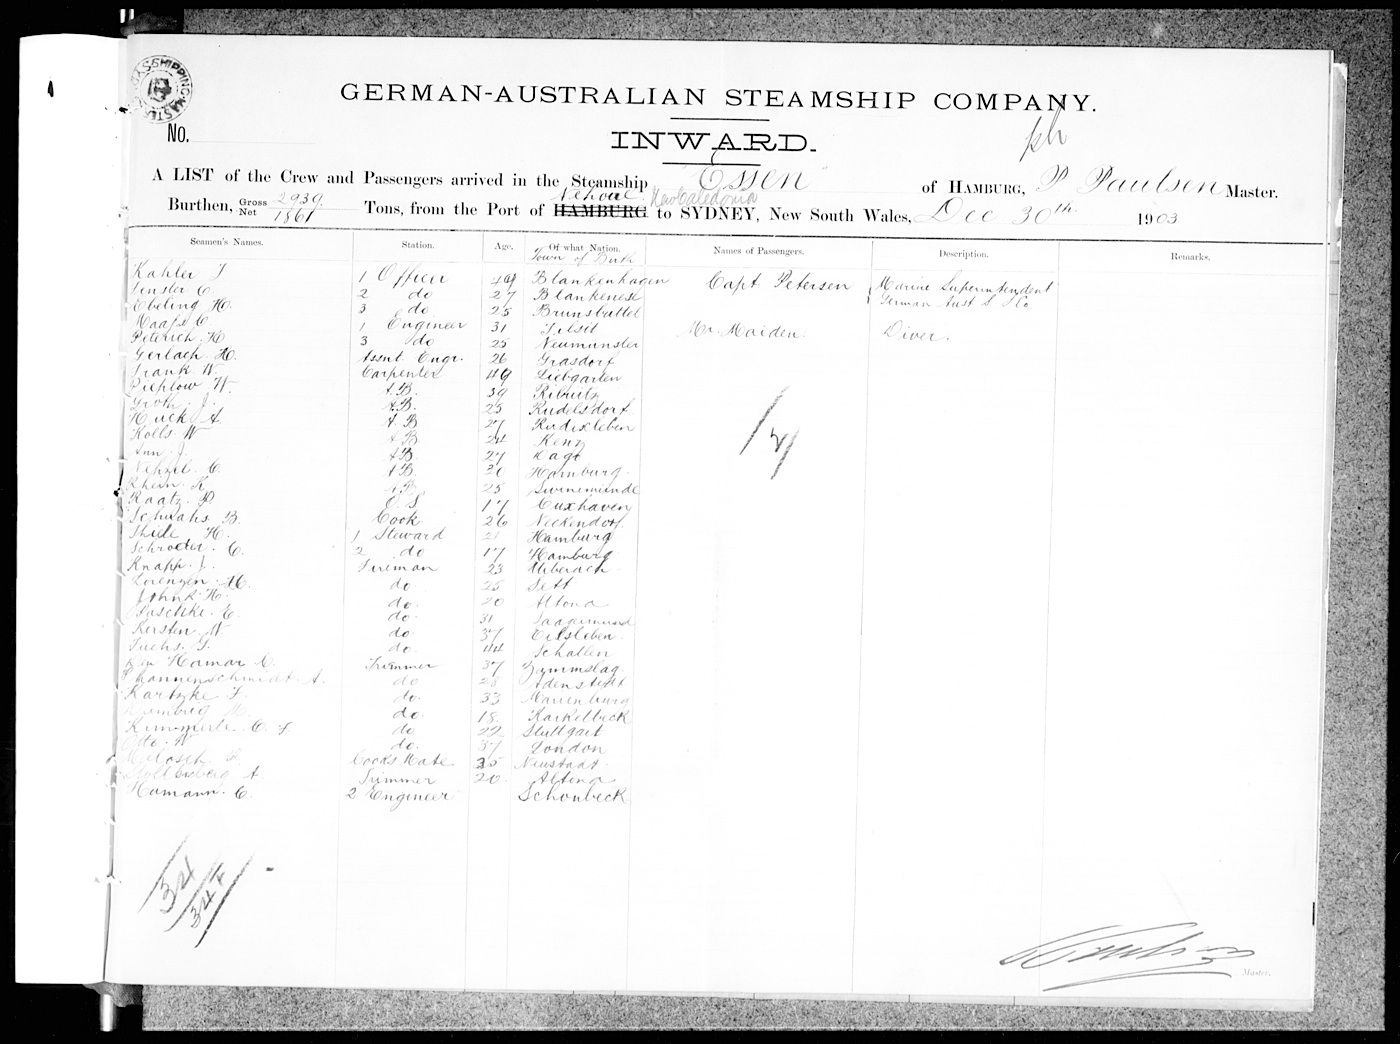 SHIPPING MASTER
GERMAN-AUSTRALIAN STEAMSHIP COMPANY.
No.
INWARD.
A LIST of the Crew and Passengers arrived in the Steamship "Essen" of HAMBURG, P Paulsen Master.
Burthen, Gross 2939 Net 1861 Tons, from the Port of HAMBURG Nehoue New Caledonia to SYDNEY, New South Wales, Dec 30th 1903
Seamen's Names. Station. Age. Of what Nation. Town of Birth Names of Passengers. Description. Remarks.
Kahler J 1 Officer 49 Blankenhagen Capt Petersen Marine Superintendent
C. 2 do 27 Blankenese German Aust S S Co
Ebeling H. 3 do 25 Brunsbuttel
Haafs C 1 Engineer 31 Tilsit Mr. Maiden. Diver.
Peterich K 3 do 25 Neumunster
Gerlach H. Assnt Engr. 26 Grasdorf
Frank W. Carpenter 49 Liebgarten
Pieplow W. A.B. 39 Ribnitz
Groth J. A.B. 25 Rudelsdorf
Huck A. A.B 27 Rudixleben
Kolls W A B 24 Kenz
Ann J. A.B. 27
C. A B. 20 Hamburg
Rhein K A B. 25 Swinemunde
Raatz P. O.S. 17 Cuxhaven
Schwahs B. Cook 26 Neckendorf
Thiele H. 1 Steward 21 Hamburg
Schroder C. 2 do 17 Hamburg
Knapp J. Fireman 23 Biberach
Lorenzen M. do 25 Sett
John K H. do. 20 Altona
Paschke E. do. 31
Kersten W. do. 37 Eilsleben.
Fuchs do. 44 Schallen
Hamar C. Trimmer 37
Pfannenschmidt A. do 28 Adenstedt
Kartzke F. do. 33 Marienburg
do. 18. Karkelbeck
Kimmerle C. F. do 22 Stuttgart
Otto W do. 37 London
Cooks Mate 35 Neustadt
Stoltenberg A Trimmer 20. Altona
Hamann C. 2 Engineer Schonbeck
34
34
Master.